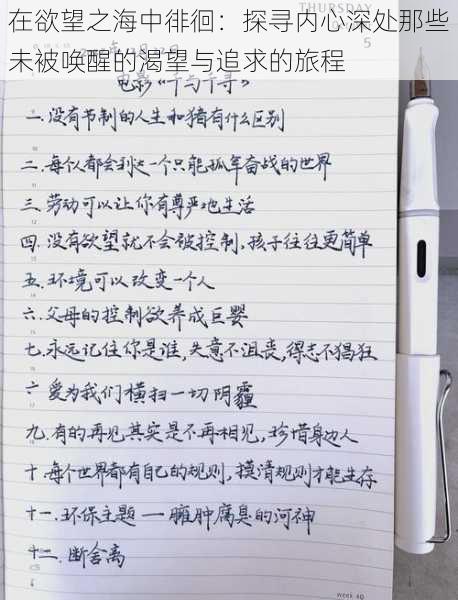 在欲望之海中徘徊：探寻内心深处那些
未被唤醒的渴望与追求的旅程
THURSDAY
5
电影《千与千寻》
一.没有节制的人生和猪有什么区别
二.每个人都会到达一个只能孤军奋战的世界
三.劳动可以让你有尊严地生活
四.没有欲望就不会被控制,孩子往往更简单
五.环境可以改变一个人
六.父母的控制欲养成巨婴
七.永远记住你是谁,失意不沮丧,得志不猖狂
六爱为我们横扫一切阴霾
九.有的再见其实是不再相见,珍惜身边人
十.每个世界都有自己的规则,摸清规则才能生存
十一.环保主题 — 臃肿腐臭的河神
十二.断舍离
week 40